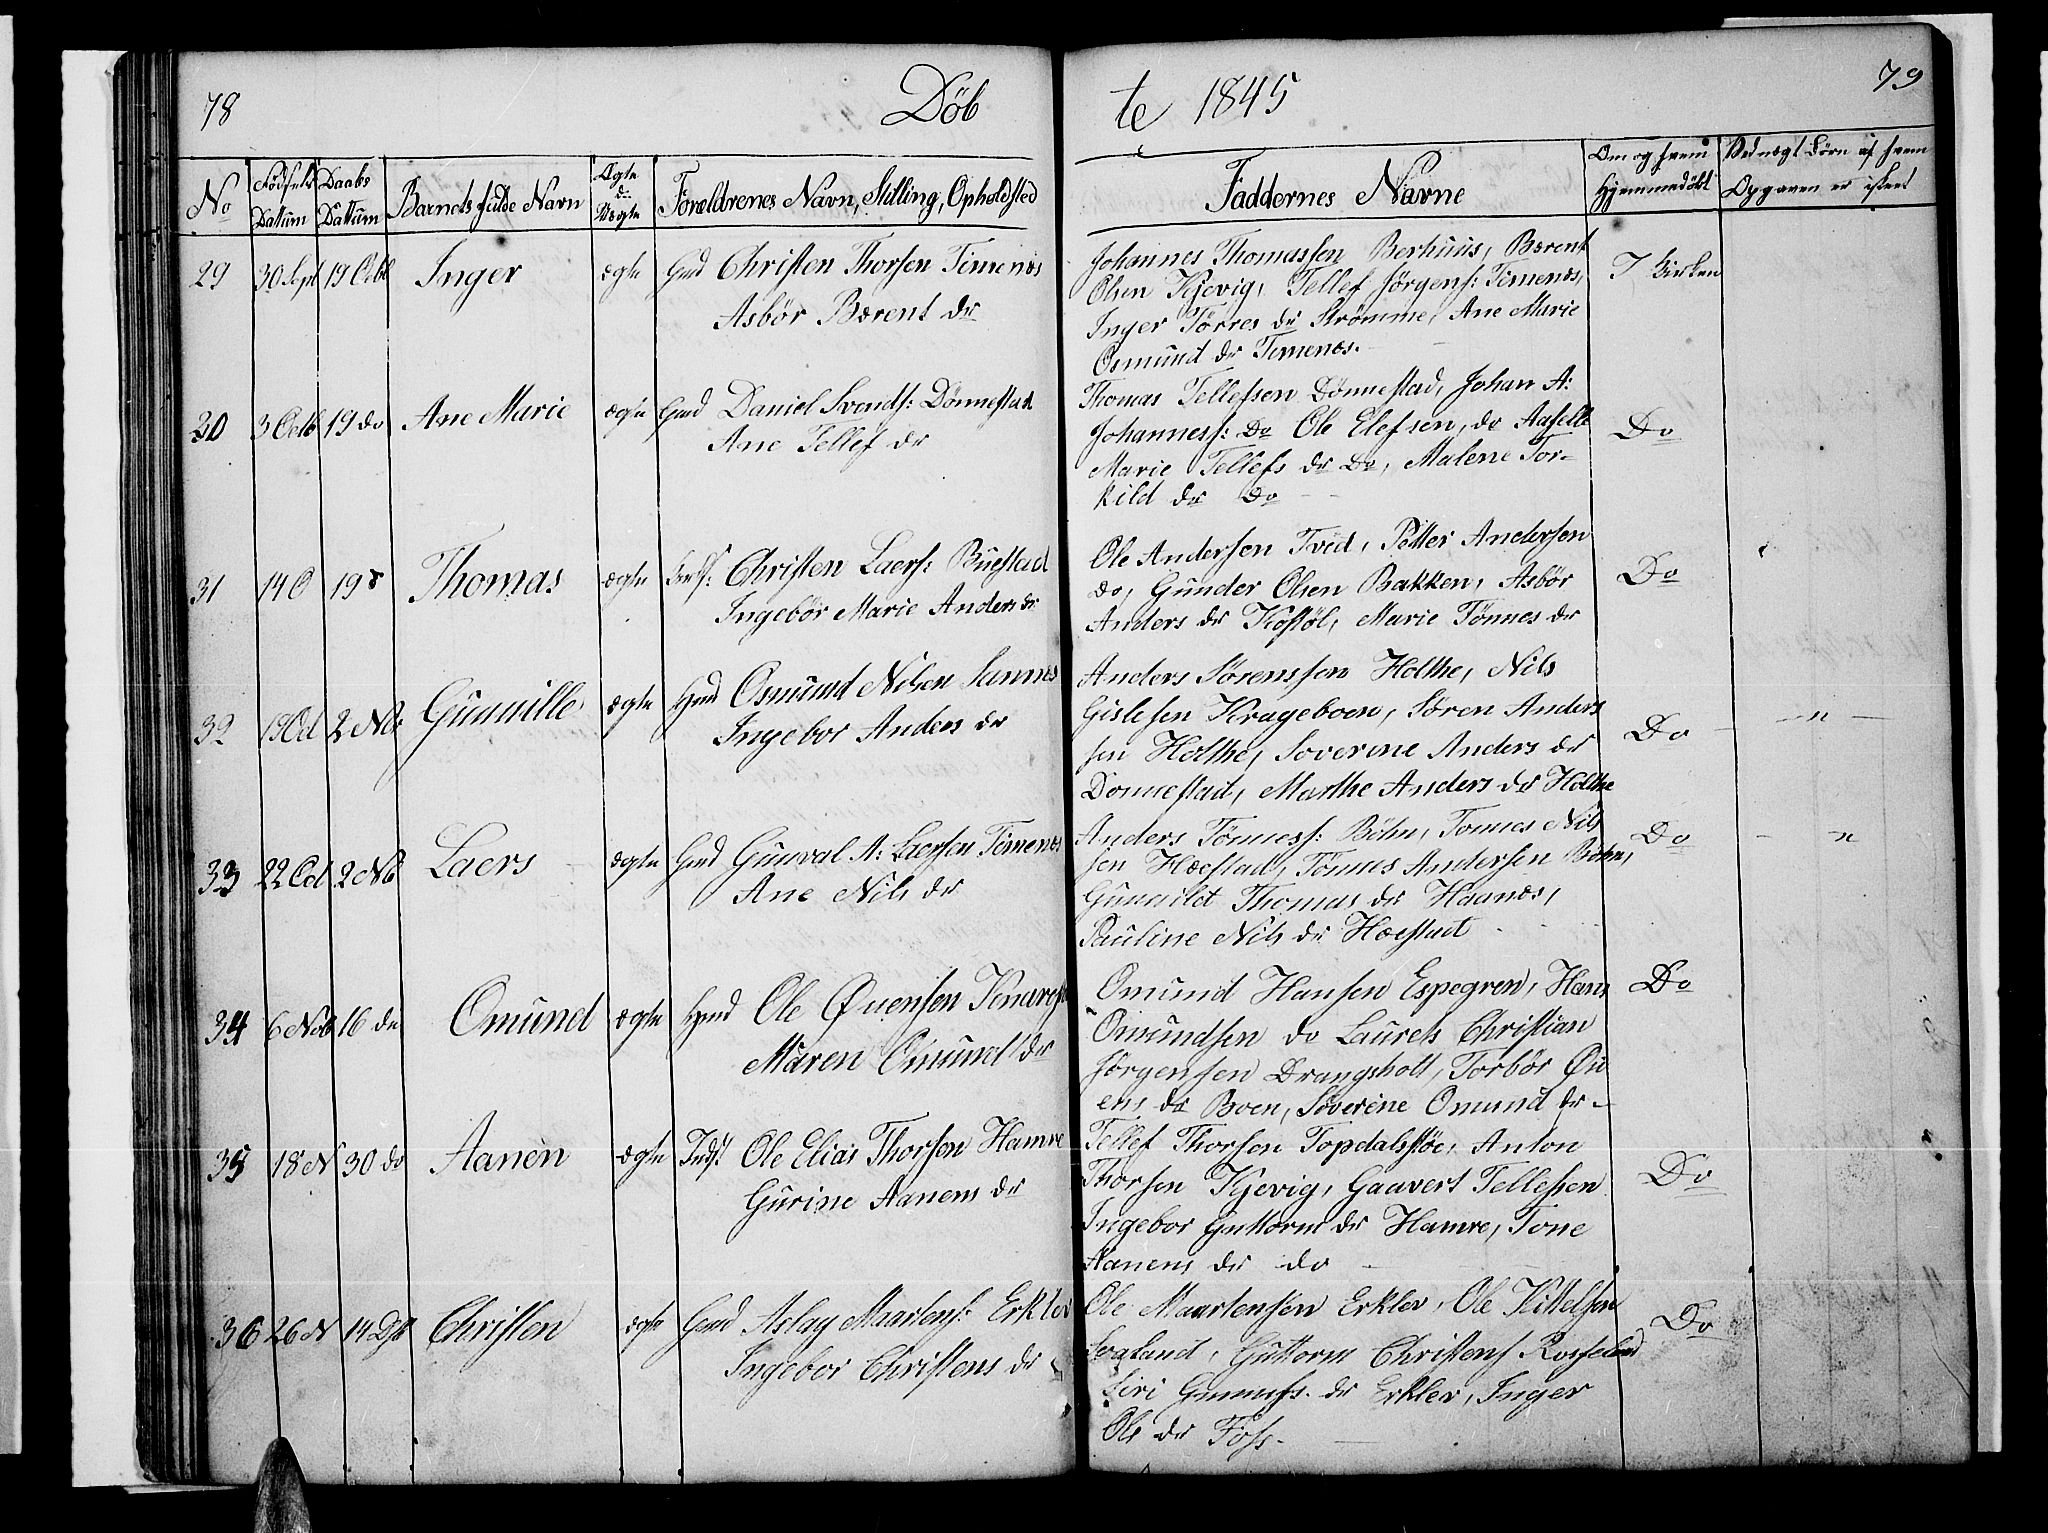 78
Döb
te 1845
79
No
Fødsels Dattum
Daabs Dattum
Barnets fulde Navn
Ægte d. Uægte
Forældrenes Navn, Stilling, Opholdsted
Faddernes Navne
Om og hvem Hjemmedøbt
Opgaven er
29 30 Sept 19 Octb Inger ægte Gmd Christen Thorsen Timenæs
Asbör Bærent dr
Johannes Thomassen Berhuus, Bærent
Olsen Kjevig, Tellef Jörgens: Timenæs,
Inger Törres dr Strömme, Ane Marie
Osmund dr Timenæs.
I Kirken
30 3 Octb 19 do Ane Marie ægte Gmd Daniel Svends: Dönnestad
Ane Tellef dr
Thomas Tellefsen Dönnestad, Johan A:
Johanness: Do Ole Elefsen, do Aaselle
Marie Tellefs dr Do, Malene Tor-
kild dr Do
Do
31 14 O 19 Thomas ægte Christen Laers: Buestad
Ingebör Marie Anders dr
Ole Andersen Tved, Petter Andersen
do, Gunder Olsen Bakken, Asbör
Anders dr Kostöl, Marie Tönnes dr
Do
32 19 Od 2 Nb Gunnille ægte Hmd Osmund Nilsen Sannes
Ingebor Anders dr
Anders Sörenssen Holthe, Nils
Gislesen Krageboen, Sören Anders
sen Holthe, Soverine Anders dr
Donnestad, Marthe Anders dr Holthe
Do — n —
33 22 Od 2 Nb Laers ægte Gmd Gunval A: Laersen Timenes
Ane Nils dr
Anders Tönness: Böhn, Tonnes Nils
sen Hæestad, Tönnes Andersen Böhn,
Gunnild Thomas dr Haanæs,
Pauline Nils dr Hæestad
Do — n
34 6 Nob 16 do Omund ægte Hmd Ole Øuensen
Maren Omund dr
Omund Hansen Espegren, Hans
Omundsen do Laurets Christian
Jörgensen Drangsholt, Torbör Øu
ens dr Boen, Soverine Omund dr -
Do
35 18 N 30 do Aanen ægte Inds: Ole Elias Thorsen Hamre
Gurine Aanens dr
Tellef Thorsen Topdalsföe, Anton
Thorsen Kjevig, Gauvert Tellefsen
Ingebor Guttorm dr Hamre, Tone
Aanens dr do
Do
36 26 N 14 Ds Christen ægte Gmd Aslag Maartens: Erklev
Ingebor Christens dr
Ole Maartensen Erklev, Ole Kittelsen
Sogland, Guttorm Christens Rosseland
Siri Gunnufs. dr Erklev, Inger
Ols dr Foss.
Do